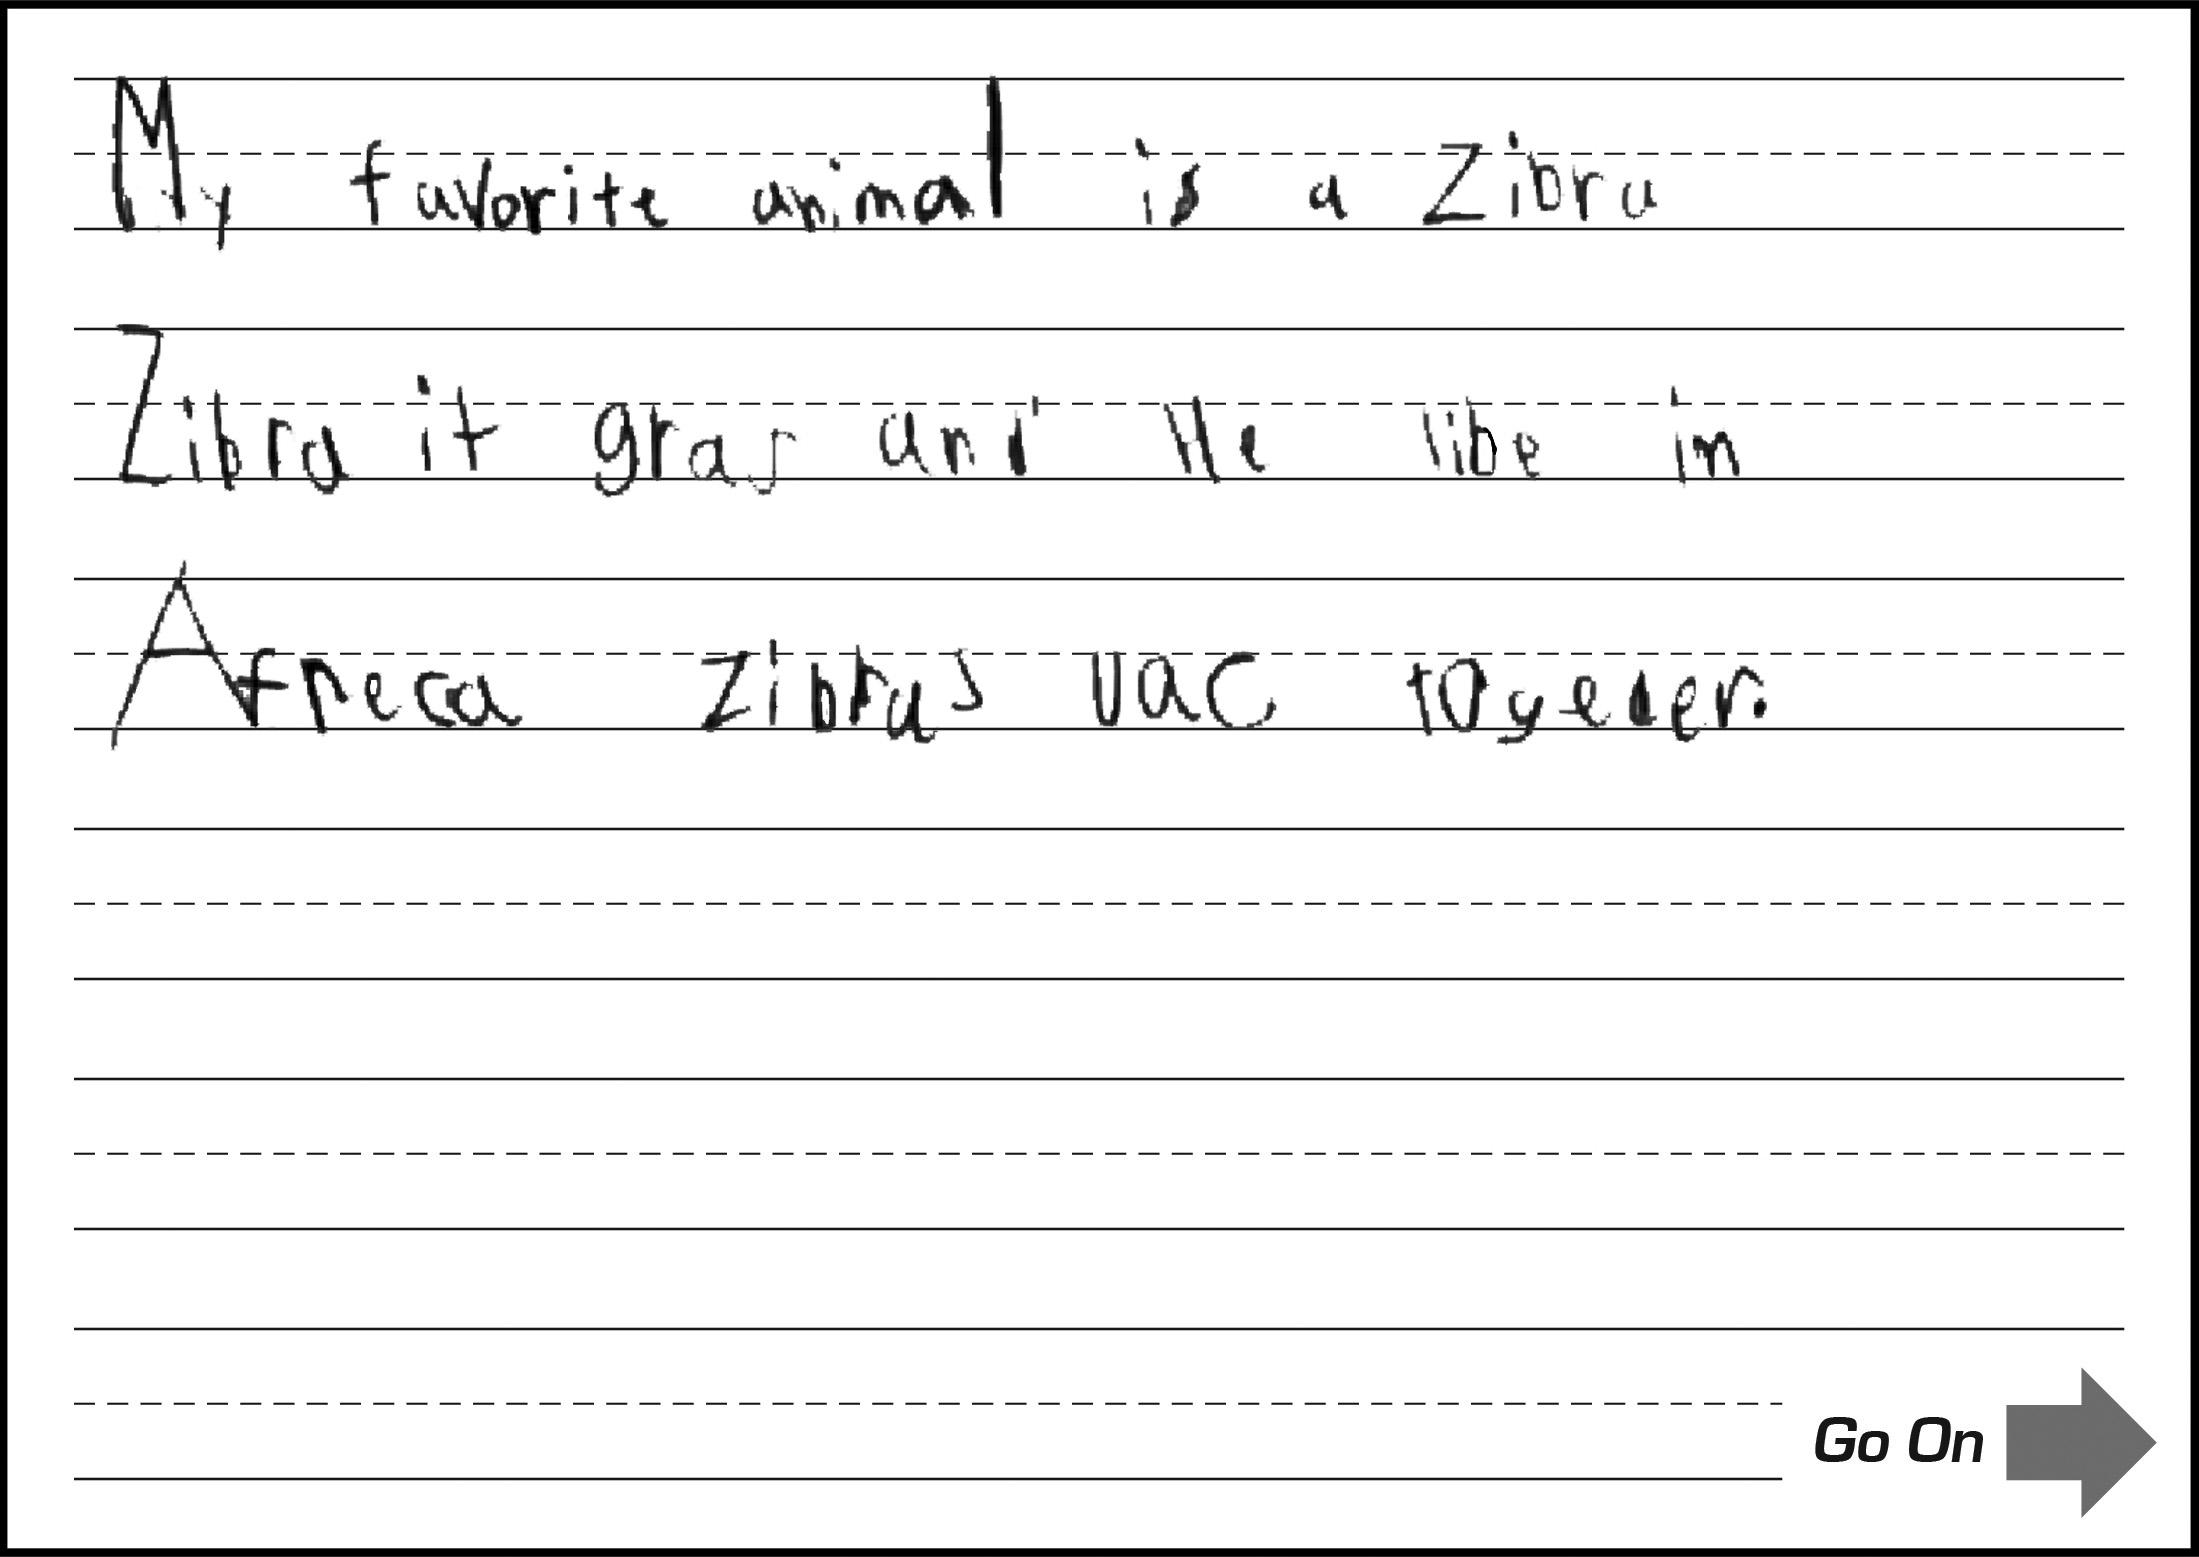 My favorite animal is a Zibra
Zibra it gras and He libe in
Afreca Zibras vac togeder.
Go On